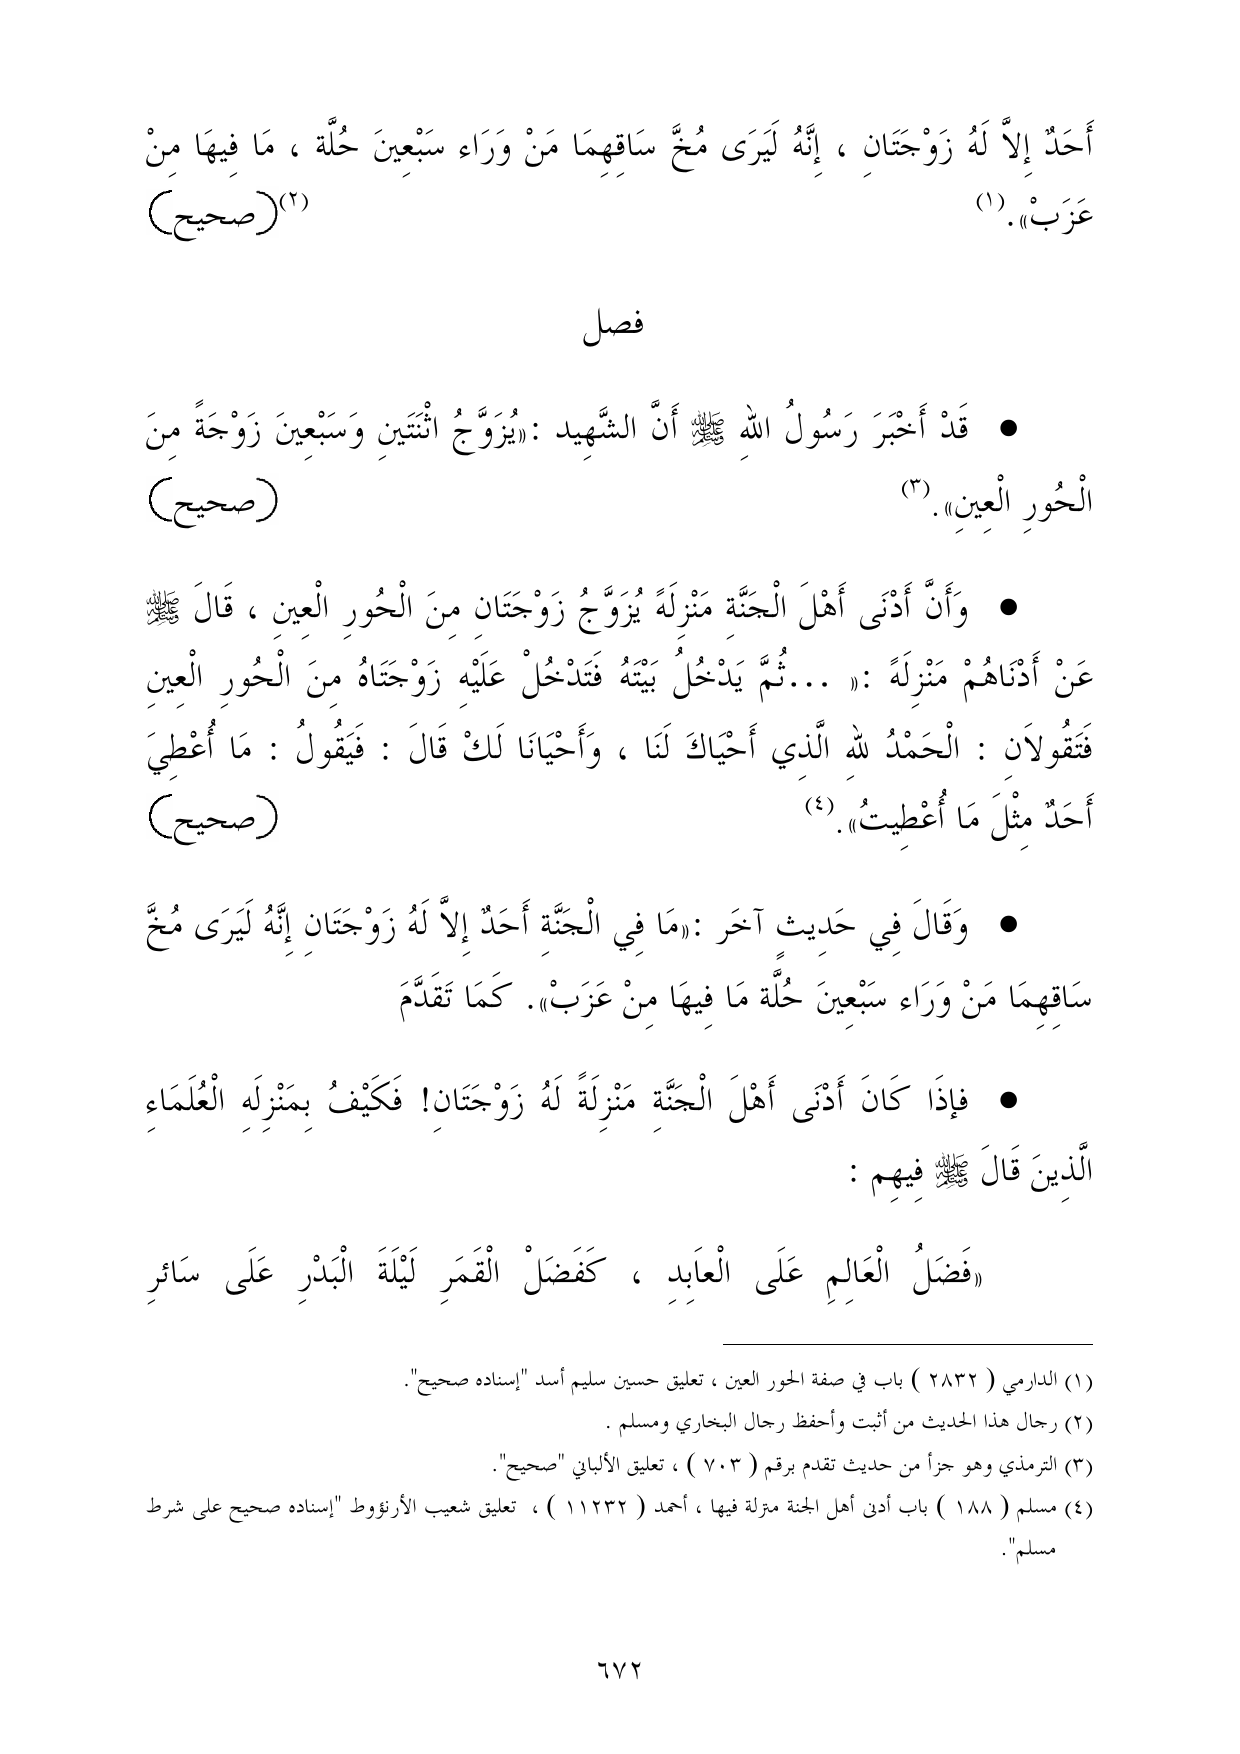 أَحَدٌ إِلاَّ لَهُ زَوْجَتَانِ ، إِنَّهُ لَيَرَى مُخَّ سَاقِهِمَا مَنْ وَرَاء سَبْعِينَ حُلَّة ، مَا فِيهَا مِنْ
عَزَبْ». (١) (صحيح)(٢)
فصل
● قَدْ أَخْبَرَ رَسُولُ اللهِ ﷺ أَنَّ الشَّهِيد :«يُزَوَّجُ اثْنَتَينِ وَسَبْعِينَ زَوْجَةً مِنَ
الْحُورِ الْعِينِ». (٣) (صحيح)
● وَأَنَّ أَدْنَى أَهْلَ الْجَنَّةِ مَنْزِلَةً يُزَوَّجُ زَوْجَتَانِ مِنَ الْحُورِ الْعِينِ ، قَالَ ﷺ
عَنْ أَدْنَاهُمْ مَنْزِلَةً :« ...ثُمَّ يَدْخُلُ بَيْتَهُ فَتَدْخُلْ عَلَيْهِ زَوْجَتَاهُ مِنَ الْحُورِ الْعِينِ
فَتَقُولاَنِ : الْحَمْدُ للهِ الَّذِي أَحْيَاكَ لَنَا ، وَأَحْيَانَا لَكْ قَالَ : فَيَقُولُ : مَا أُعْطِيَ
أَحَدٌ مِثْلَ مَا أُعْطِيتُ». (٤) (صحيح)
● وَقَالَ فِي حَدِيثٍ آخَر :«مَا فِي الْجَنَّةِ أَحَدٌ إِلاَّ لَهُ زَوْجَتَانِ إِنَّهُ لَيَرَى مُخَّ
سَاقِهِمَا مَنْ وَرَاء سَبْعِينَ حُلَّة مَا فِيهَا مِنْ عَزَبْ». كَمَا تَقَدَّمَ
● فإذَا كَانَ أَدْنَى أَهْلَ الْجَنَّةِ مَنْزِلَةً لَهُ زَوْجَتَانِ! فَكَيْفُ بِمَنْزِلَهِ الْعُلَمَاءِ
الَّذِينَ قَالَ ﷺ فِيهِم :
«فَضَلُ الْعَالِمِ عَلَى الْعاَبِدِ ، كَفَضَلْ الْقَمَرِ لَيْلَةَ الْبَدْرِ عَلَى سَائرِ
(١) الدارمي ( ٢٨٣٢ ) باب في صفة الحور العين ، تعليق حسين سليم أسد "إسناده صحيح".
(٢) رجال هذا الحديث من أثبت وأحفظ رجال البخاري ومسلم .
(٣) الترمذي وهو جزأ من حديث تقدم برقم ( ٧٠٣ ) ، تعليق الألباني "صحيح".
(٤) مسلم ( ١٨٨ ) باب أدنى أهل الجنة منزلة فيها ، أحمد ( ١١٢٣٢ ) ، تعليق شعيب الأرنؤوط "إسناده صحيح على شرط
مسلم".
٦٧٢